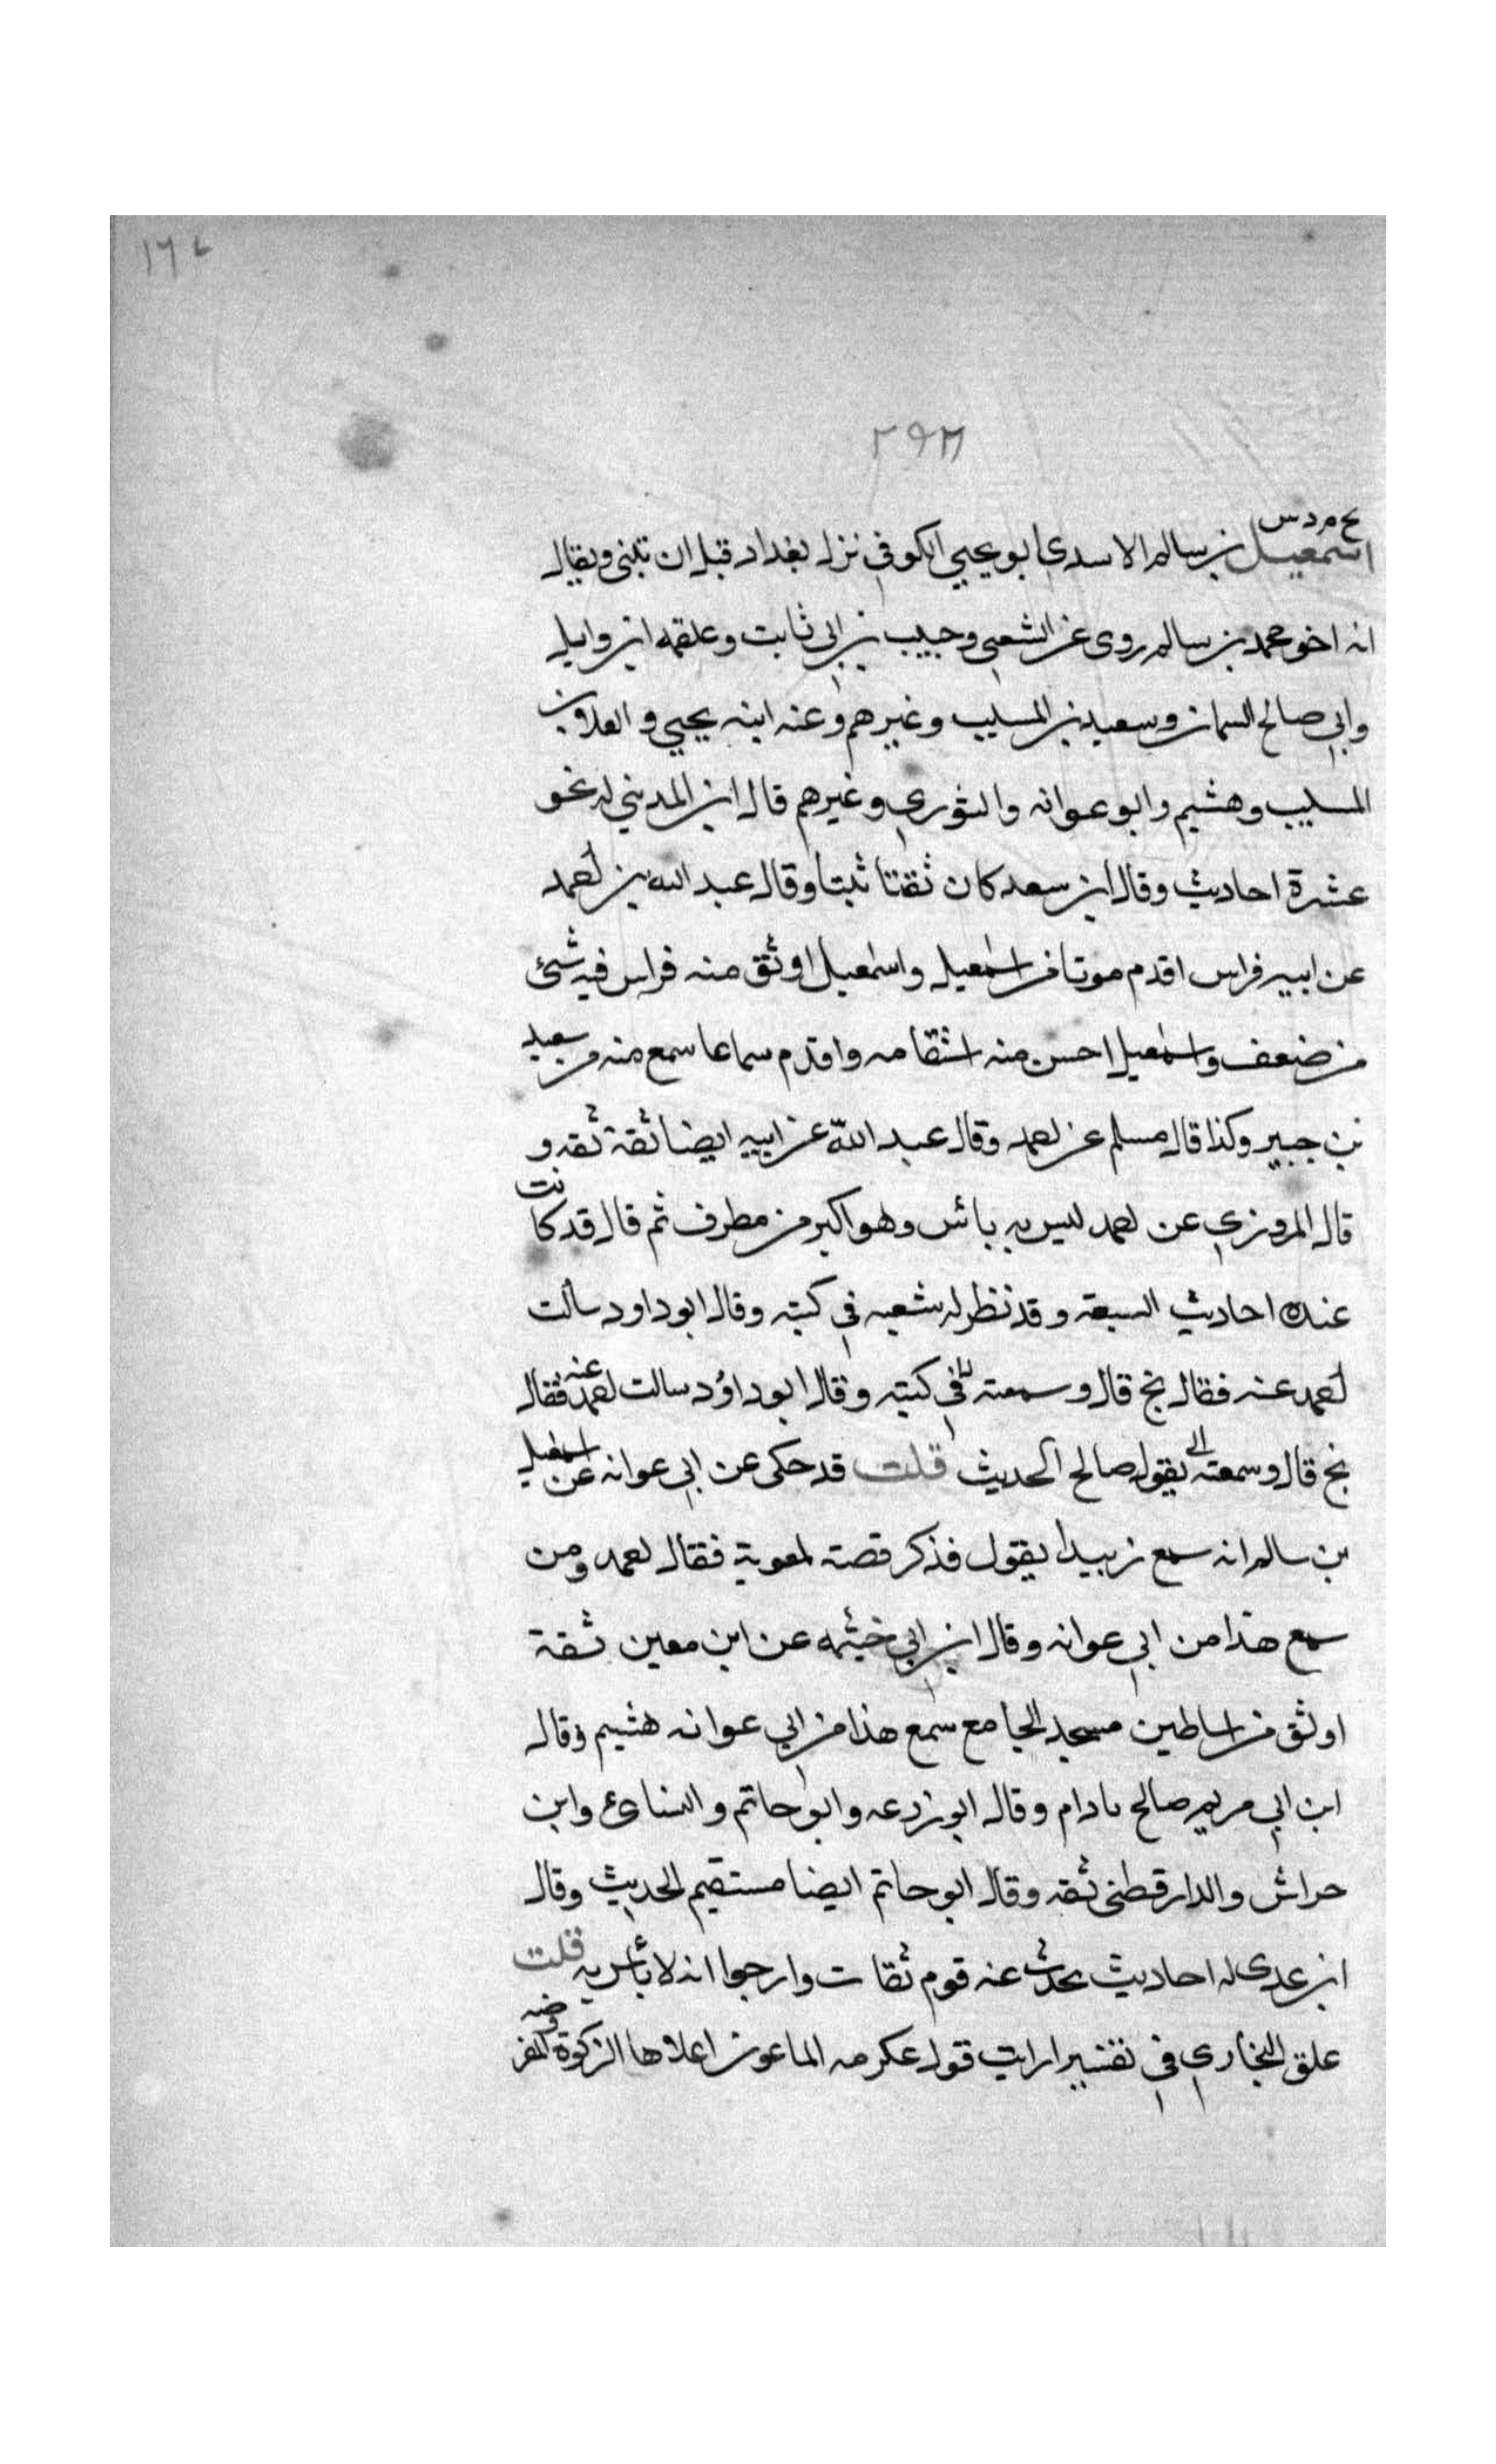 ١٦٧
٢٩٣
خ م د س
اسمعيل بن سالم الاسدي ابو يحيي الكوفي نزل بغداد قبل ان تبنى ويقال
انه اخو محمد بن سالم روى عن الشعبي وحبيب بن ابي ثابت وعلقمه ابن وايل
وابي صالح السمان وسعيد بن المسيب وغيرهم وعنه ابنه يحيي والعلاء بن
المسيب وهشيم وابو عوانه والثوري وغيرهم قال ابن المديني له نحو
عشرة احاديث وقال ابن سعد كان ثقتا ثبتا وقال عبد الله بن احمد
عن ابيه فراس اقدم موتا من اسمعيل واسمعيل اوثق منه فراس فيه شئ
من ضعف واسمعيل احسن منه استقامه واقدم سماعا سمع منه من سعيد
بن جبير وكذا قال مسلم عن احمد وقال عبد الله عن ابيه ايضا ثقة ثقه و
قال المروزي عن احمد ليس به بائس وهو اكبر من مطرف ثم قال قد كانت
عنده احاديث السبعة وقد نظر له شعبه في كتبه وقال ابو داود سالت
احمد عنه فقال بخ قال وسمعته في كتبه وقال ابو داؤد سالت احمد عنه فقال
بخ قال وسمعته يقول صالح الحديث قلت قد حكى عن ابي عوانه عن اسمعيل
بن سالم انه سمع زبيدا يقول فذكر قصته لمعوية فقال احمد ومن
سمع هذا من ابي عوانه وقال ابن ابي خيثمه عن ابن معين ثقة
اوثق من اساطين مسجد الجامع سمع هذا من ابي عوانه هشيم وقال
ابن ابي مريم صالح مادام وقال ابو زرعه وابو حاتم والنسائ وابن
حراش والدارقطني ثقه وقال ابو حاتم ايضا مستقيم الحديث وقال
ابن عدى له احاديث يحدث عنه قوم ثقات وارجوا انه لا بأس به قلت
علق البخاري في تفسير ارايت قول عكرمه الماعون اعلاها الزكوة المفروضه